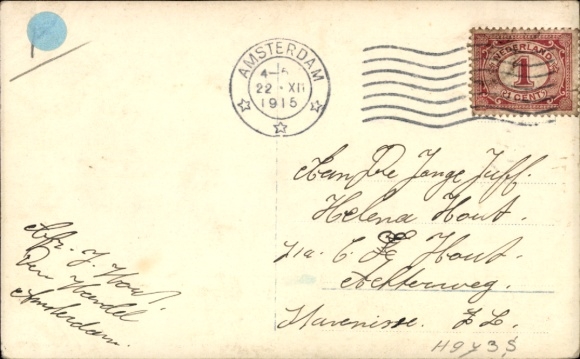 AMSTERDAM
4-5
22 XII
1915
NEDERLAND
1
CENT
Aan De Jonge Juff.
Helena Hout.
p/a. C. Hout.
Achterweg.
Stavenisse. Z.L.
Afz. J. Hout.
Den
Amsterdam.
H9435